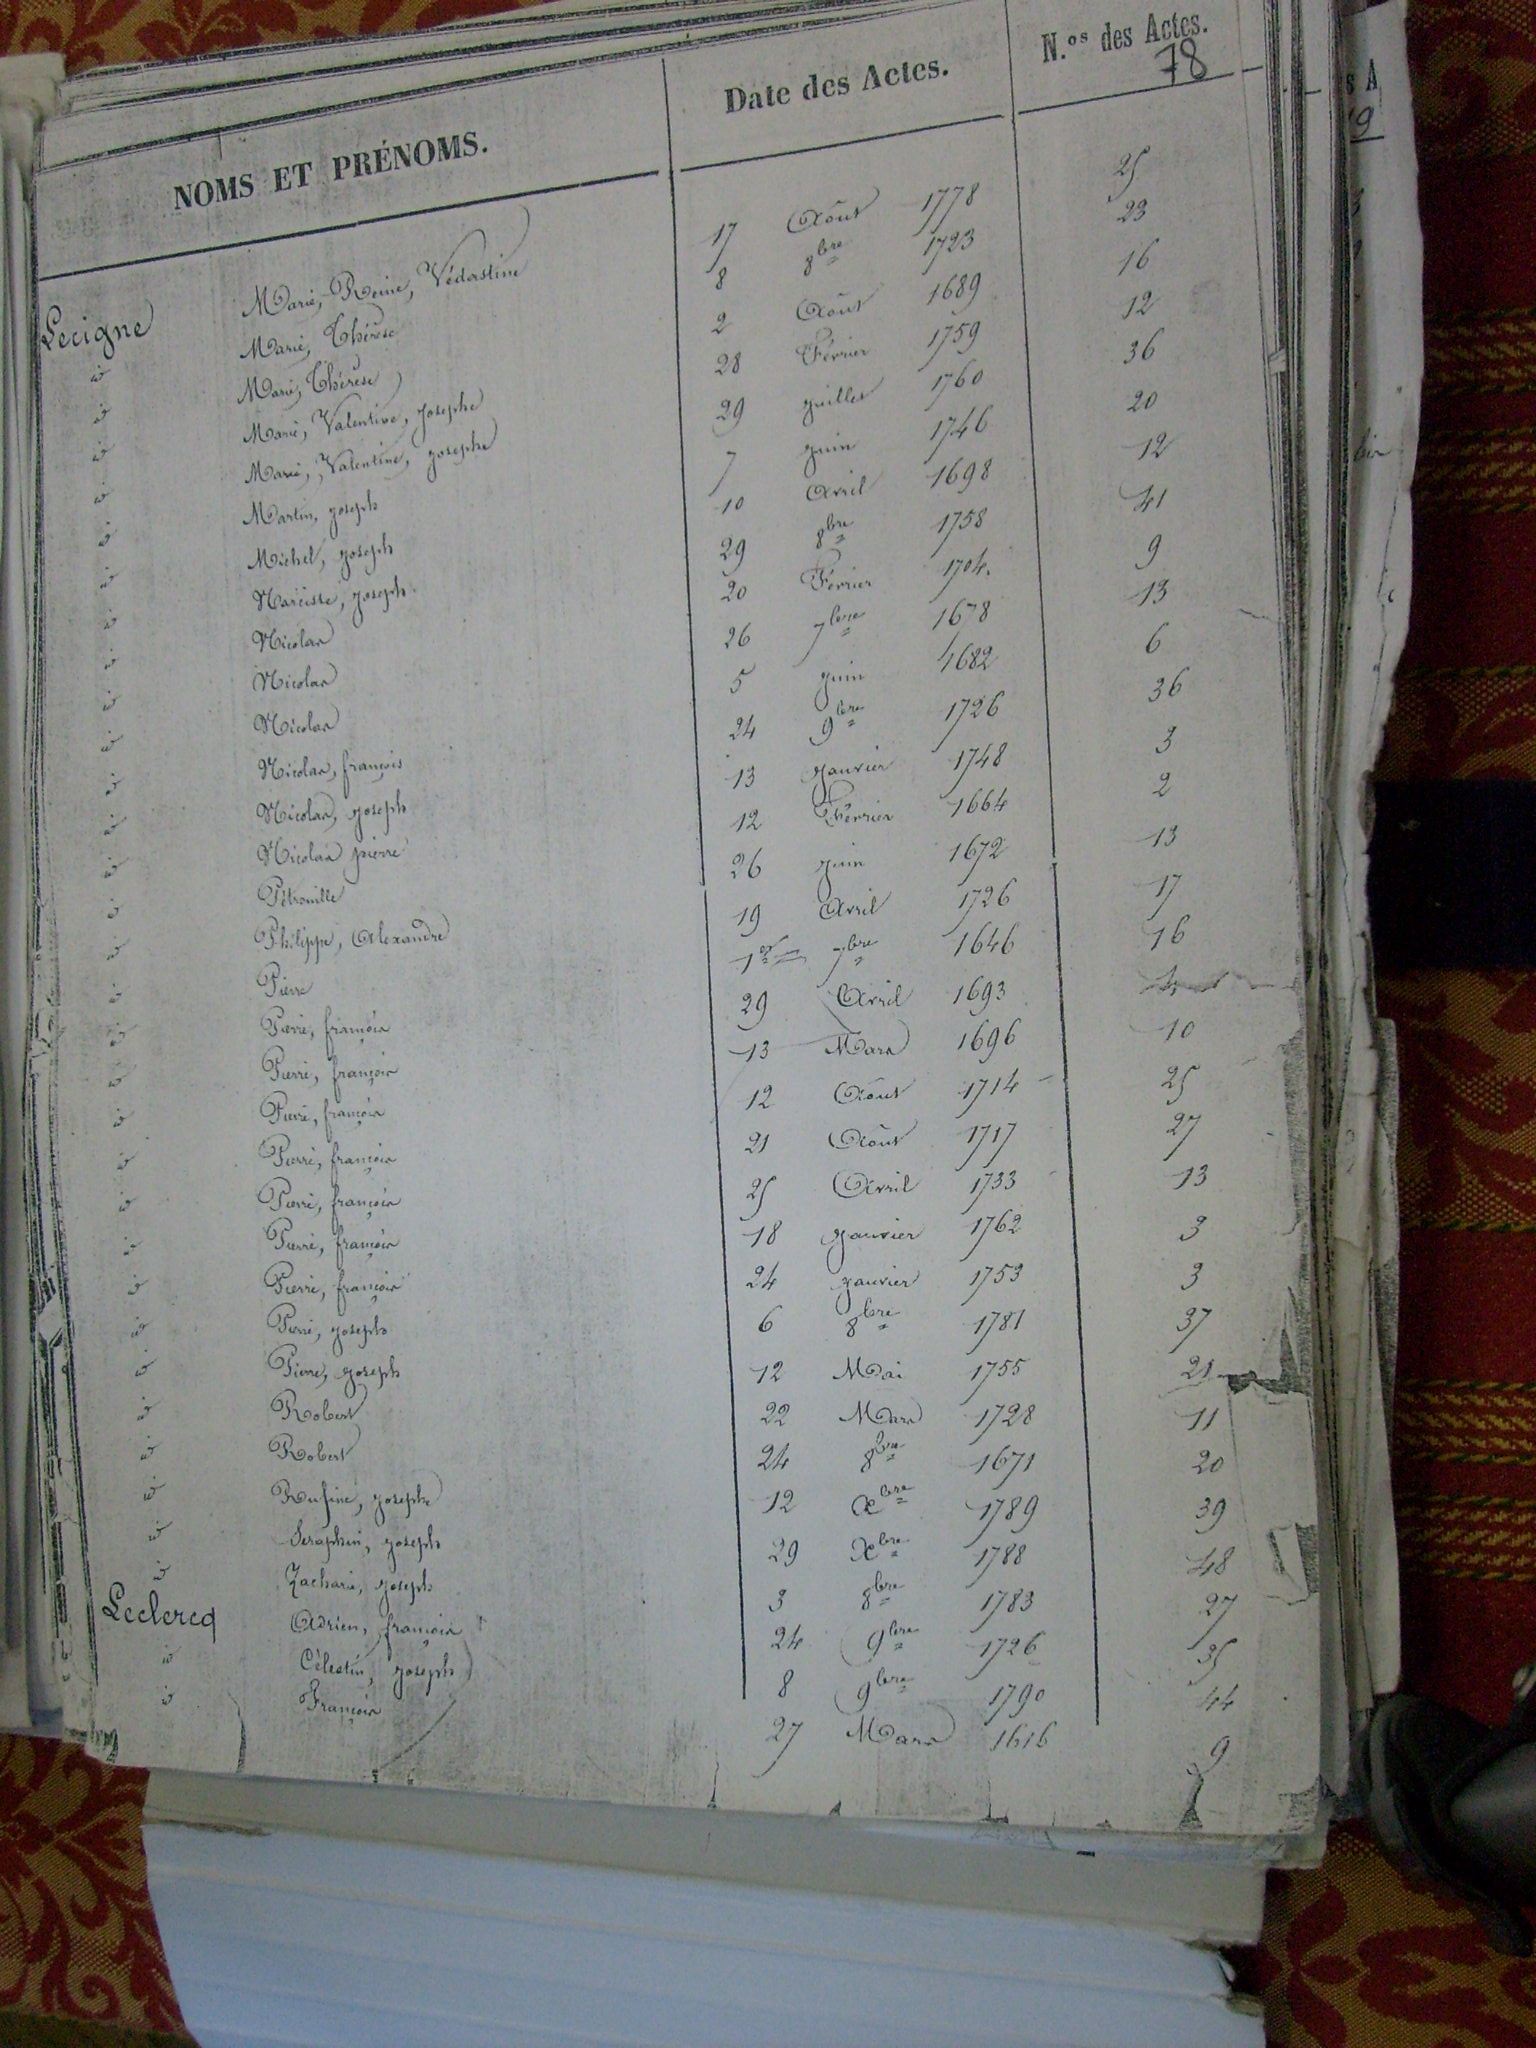 NOMS ET PRÉNOMS. Date des Actes. N.os des Actes.
78
Lecigne Marie, Reine, Védastine 17 Août 1778 25
id Marie, Thérèse 8 8bre 1723 23
id Marie, Thérèse 2 Août 1689 16
id Marie, Valentine, josephe 28 Février 1759 12
id Marie, Valentine, josephe 29 juillet 1760 36
id Martin, joseph 7 juin 1746 20
id Michel, joseph 10 Avril 1698 12
id Narcisse, joseph 29 8bre 1758 41
id Nicolas 20 Février 1704. 9
id Nicolas 26 7bre 1678 13
id Nicolas 5 juin 1682 6
id Nicolas, françois 24 9bre 1726 36
id Nicolas, joseph 13 janvier 1748 3
id Nicolas pierre 12 Février 1664 2
id Pétronille 26 juin 1672 13
id Philippe, Alexandre 19 Avril 1726 17
id Pierre 1er 7bre 1646 16
id Pierre, françois 29 Avril 1693
id Pierre, françois 13 Mars 1696 10
id Pierre, françois 12 Août 1714 25
id Pierre, françois 21 Août 1717 27
id Pierre, françois 25 Avril 1733 13
id Pierre, françois 18 janvier 1762 3
id Pierre, françois 24 janvier 1753 3
id Pierre, joseph 6 8bre 1781 37
id Pierre, joseph 12 Mai 1755 21
id Robert 22 Mars 1728 11
id Robert 24 8bre 1671 20
id Rufine, josephe 12 Xbre 1789 39
id Seraphin, joseph 29 Xbre 1788 48
id Zacharie, joseph 3 8bre 1783 27
Leclercq Adrien, françois 24 9bre 1726 35
id Célestin, joseph 8 9bre 1790 44
id François 27 Mars 1616 9